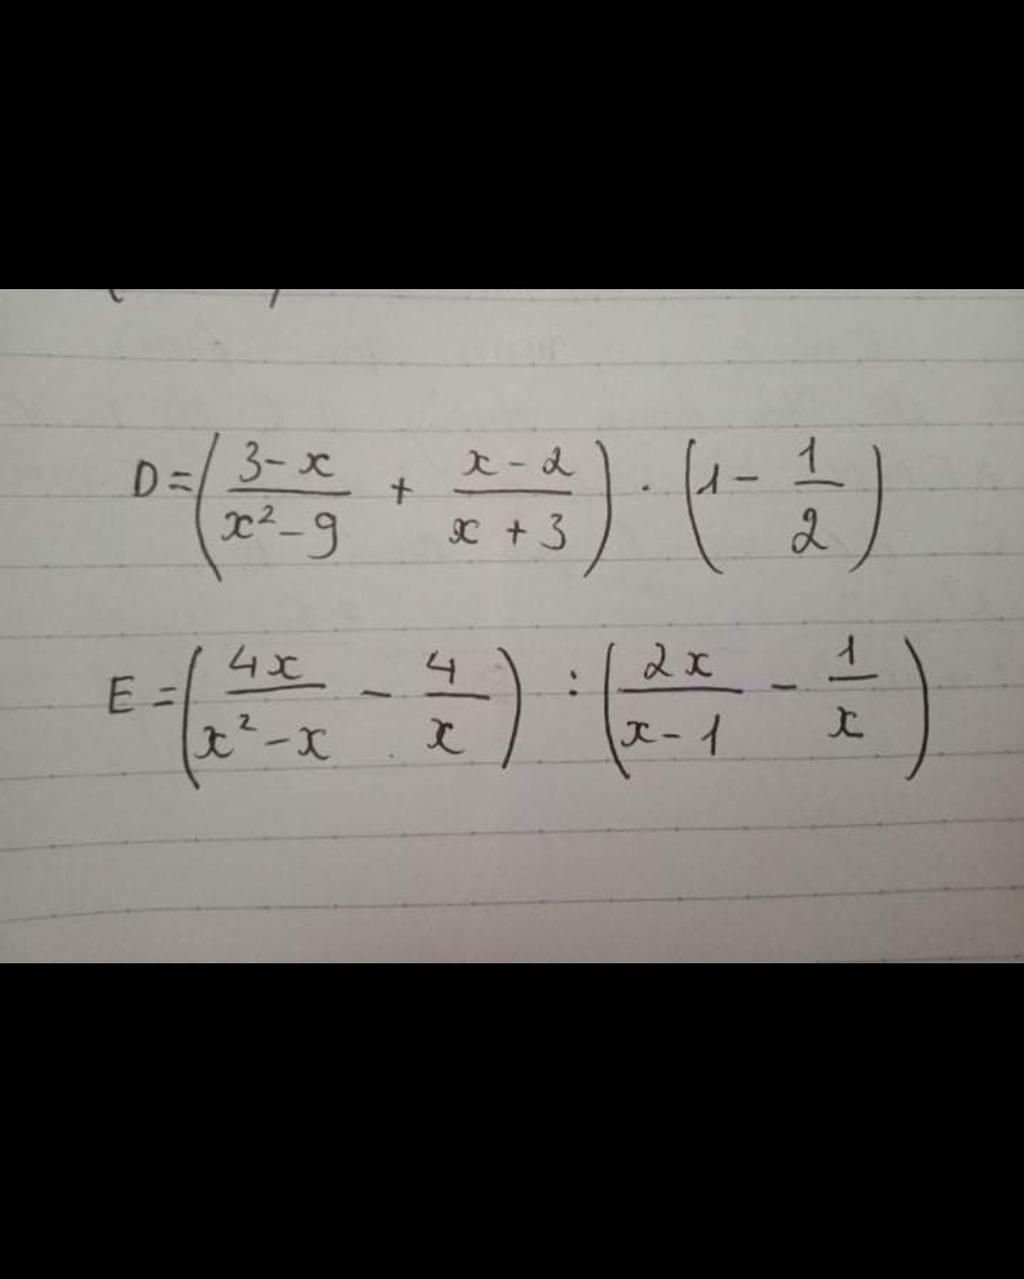 D = ( (3-x)/(x²-9) + (x-2)/(x+3) ) . ( 1 - 1/2 )
E = ( 4x/(x²-x) - 4/x ) : ( 2x/(x-1) - 1/x )